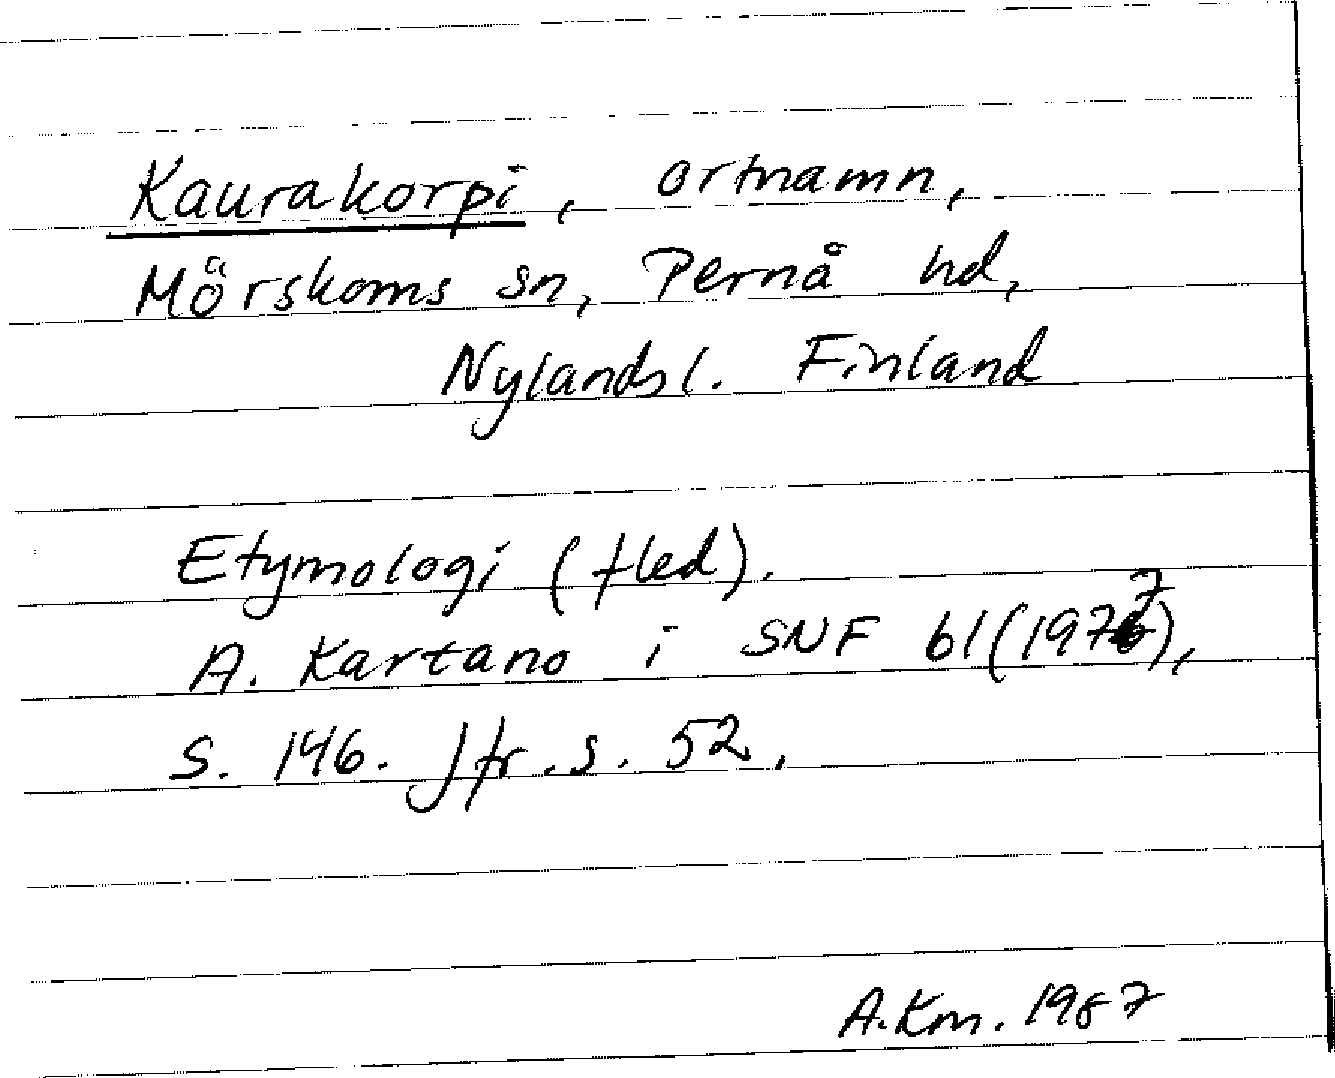 Kaurakorpi, ortnamn,
Mörskoms sn, Pernå hd,
Nylands l. Finland
Etymologi (fled).
A. Kartano i SNF 61(1977),
S. 146. Jfr. s. 52.
A.Km. 1987